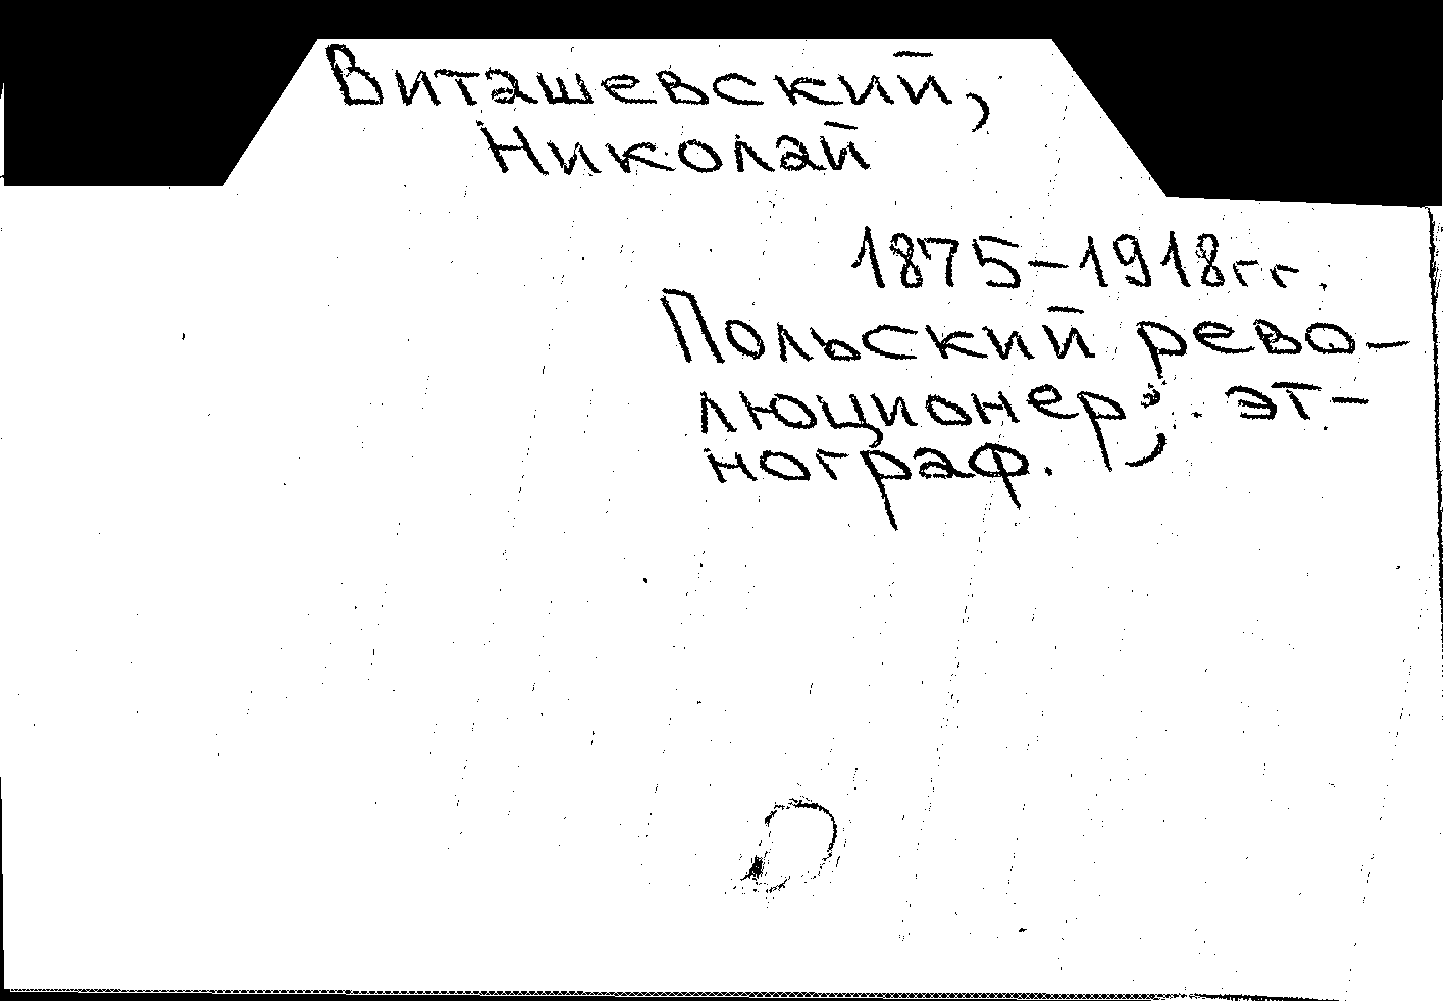 Виташевский,
Николай
1875-1918гг.
Польский рево-
люционер, эт-
нограф.